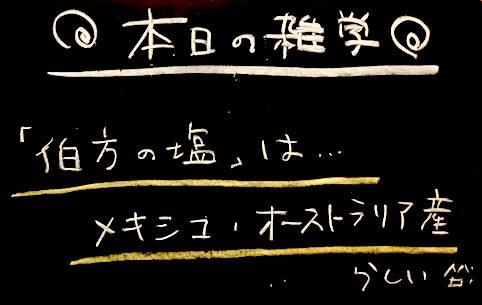 本日の雑学
「伯方の塩」は…
メキシコ・オーストラリア産
らしい 笑